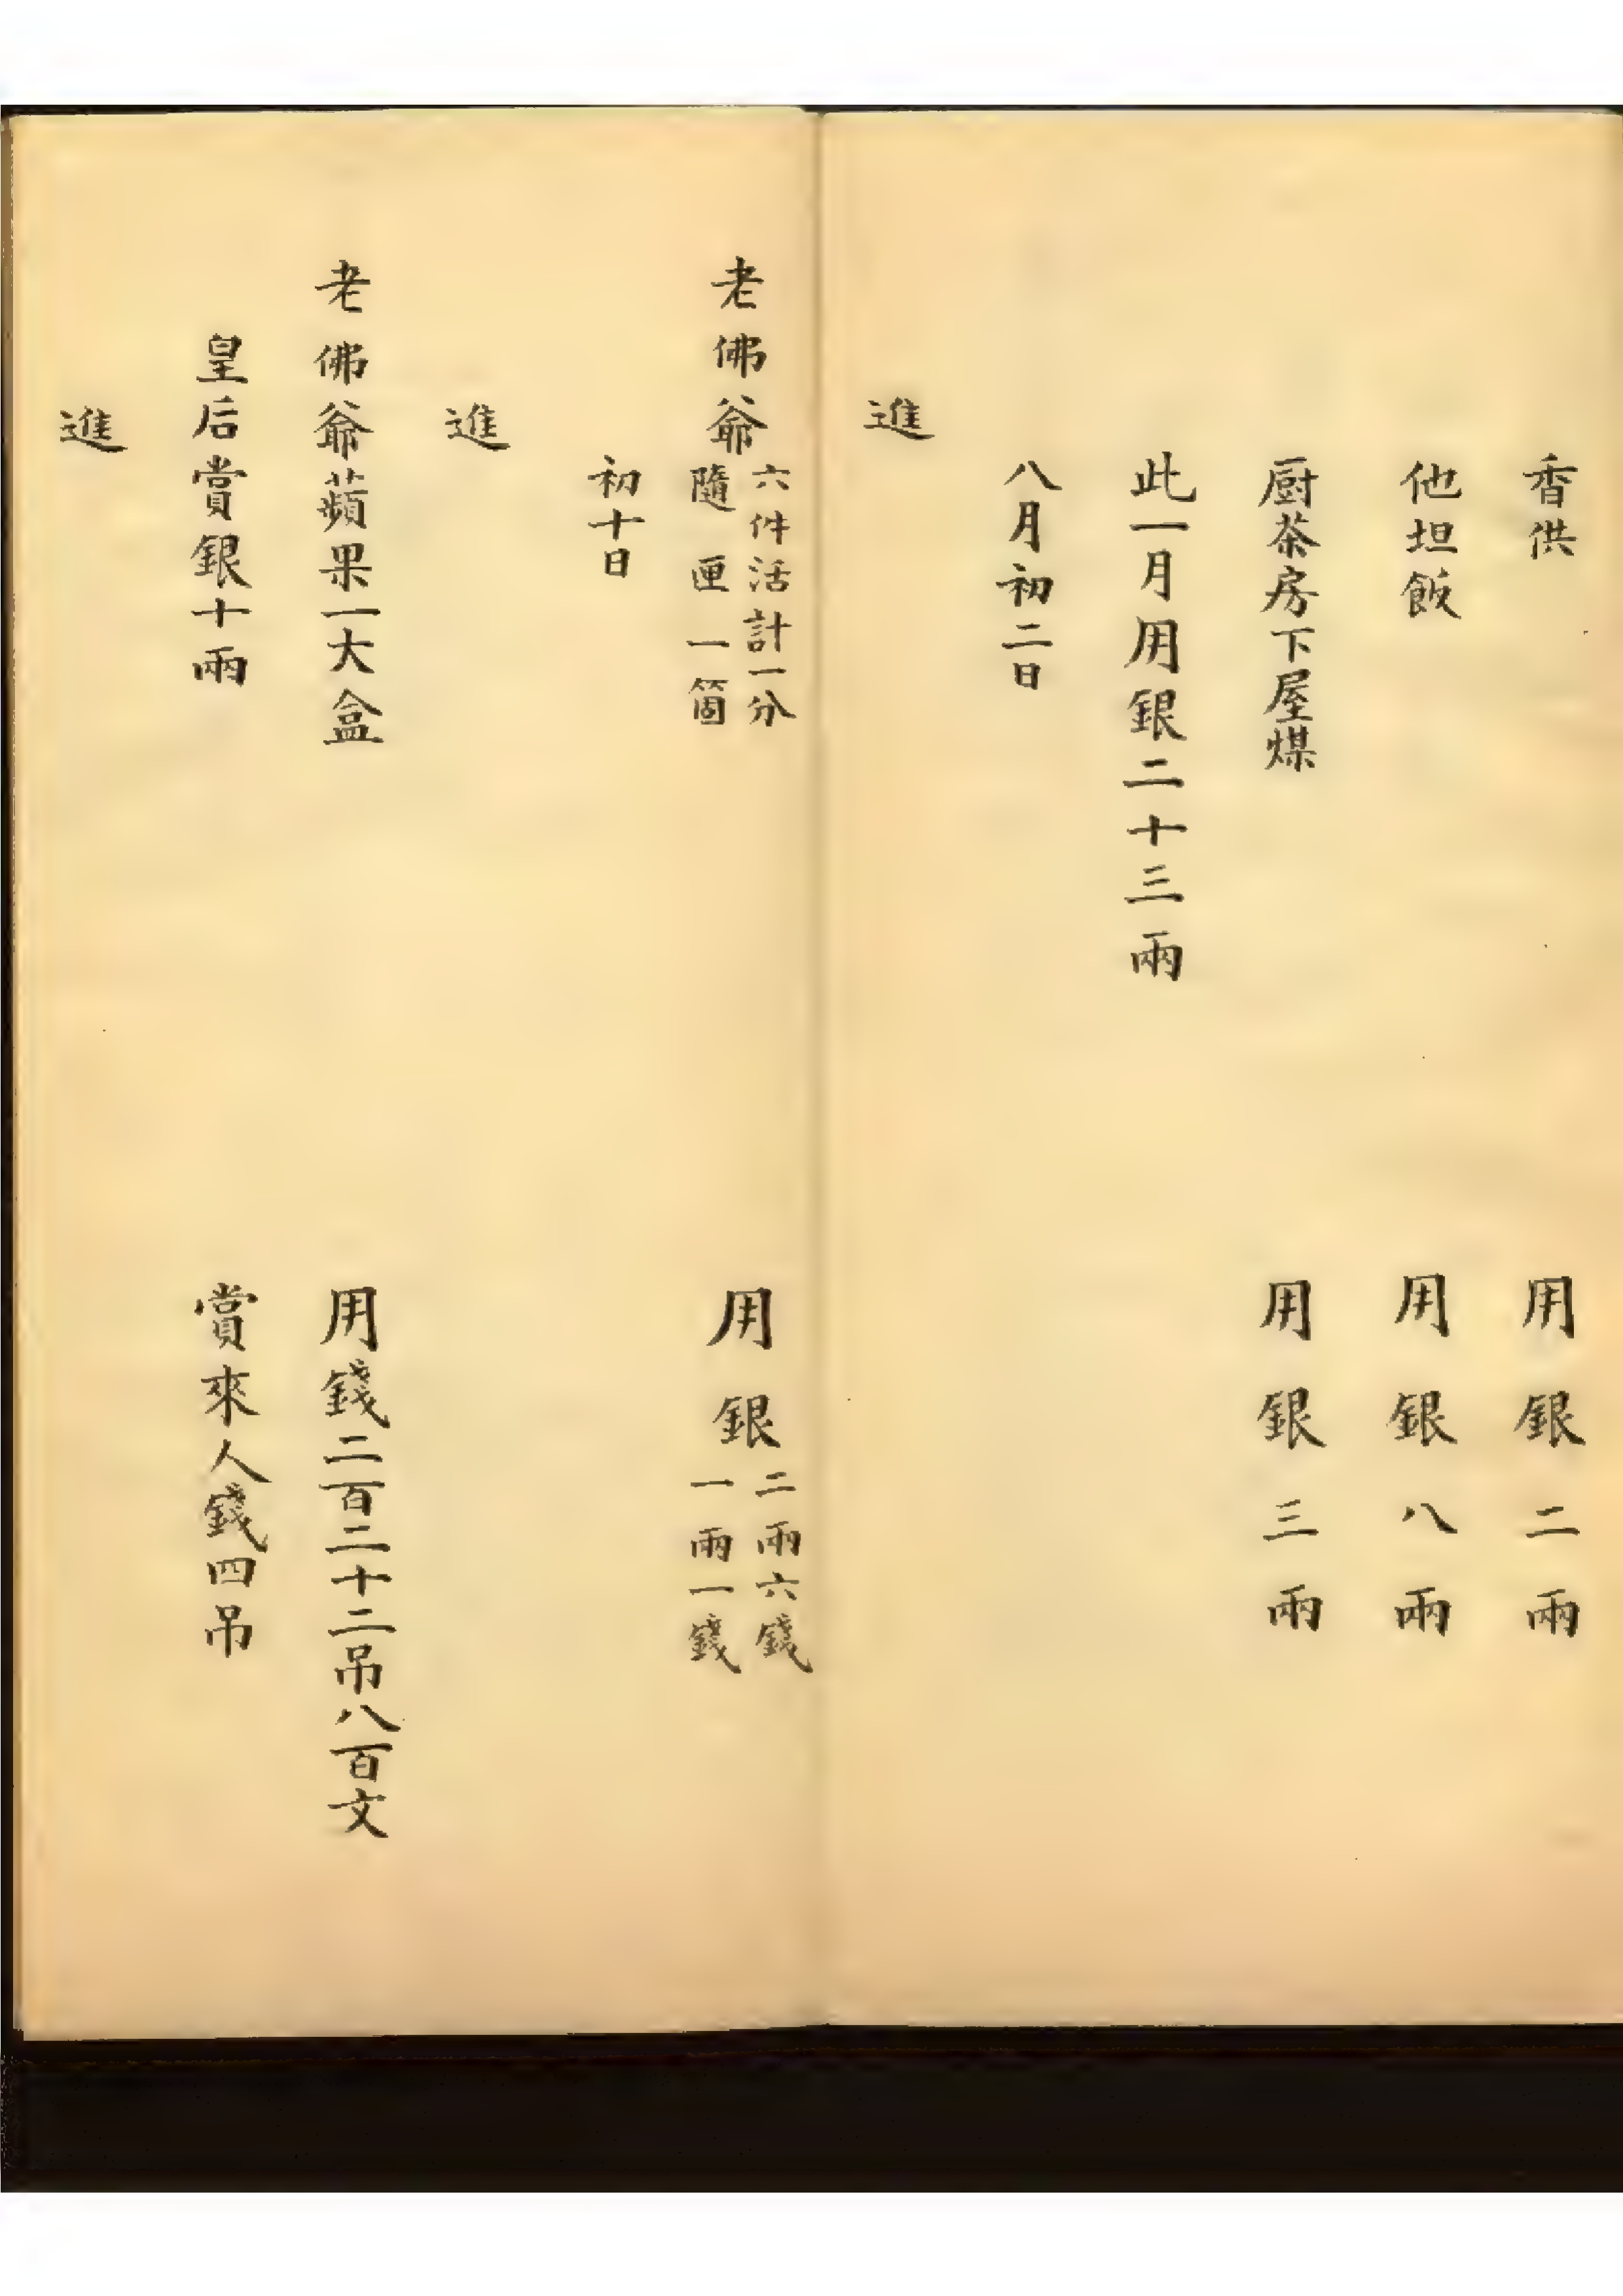 香供　用銀二兩
他坦飯　用銀八兩
厨茶房下屋煤　用銀三兩
此一月用銀二十三兩
八月初二日
進
老佛爺　用銀
六件活計一分　二兩六錢
隨匣一箇　一兩一錢
初十日
進
老佛爺蘋果一大盒　用錢二百二十二吊八百文
皇后賞銀十兩　賞來人錢四吊
進